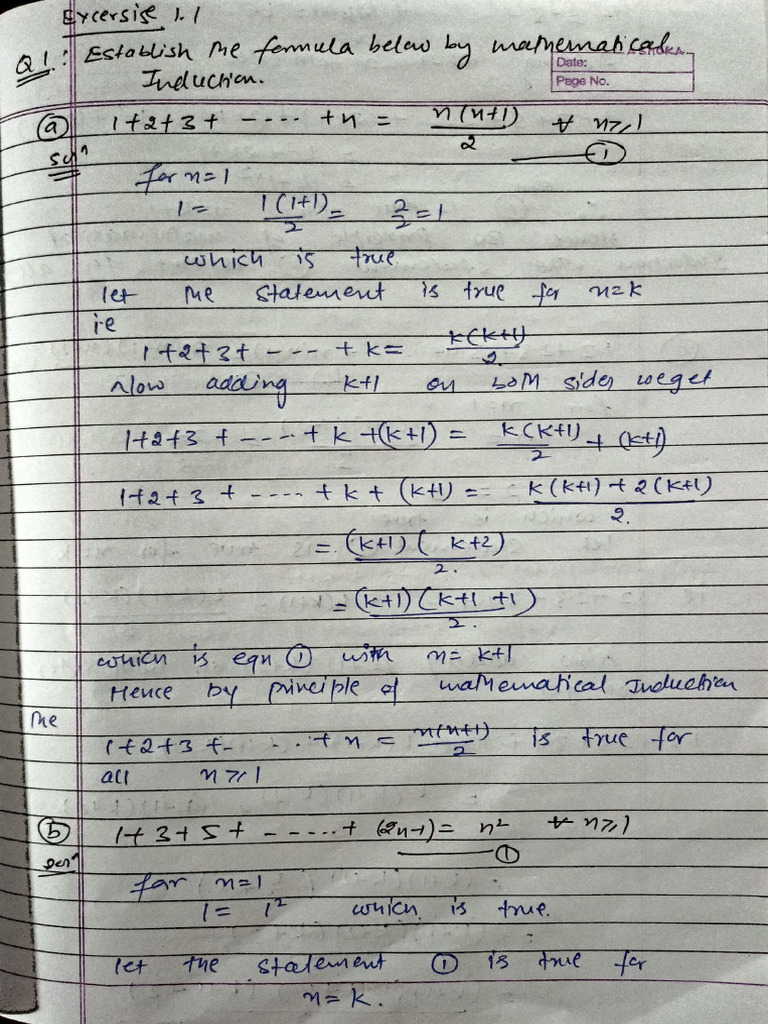 Excersise 1.1
Q1.: Establish the formula below by mathematical
Induction.
ASHOKA
Date:
Page No.
(a) 1+2+3+ ----- +n = n(n+1)/2 ∀ n≥1
Solⁿ ——— (1)
for n=1
1 = 1(1+1)/2 = 2/2 = 1
which is true
let the statement is true for n=k
ie
1+2+3+ ----- + k = k(k+1)/2.
Now adding k+1 on both sides we get
1+2+3 + ----- + k +(k+1) = k(k+1)/2 + (k+1)
1+2+3 + ----- + k + (k+1) = k(k+1)+2(k+1)/2.
= (k+1)(k+2)/2.
= (k+1)(k+1+1)/2.
which is eqn (1) with n= k+1
Hence by principle of mathematical Induction
the
1+2+3+- ...+ n = n(n+1)/2 is true for
all n≥1
(b) 1+3+5+ -----+ (2n-1) = n² ∀ n≥1
Solⁿ ——— (1)
for n=1
1 = 1² which is true.
let the statement (1) is true for
n=k.